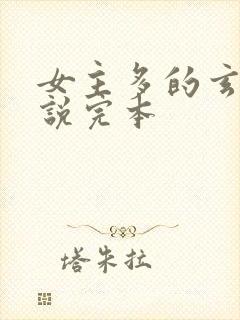 女主多的玄
說完本
塔朱拉